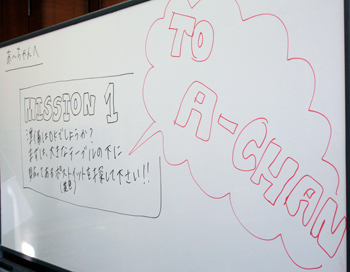 あ〜ちゃんへ
TO
A-CHAN
MISSION 1
準備はOKでしょうか?
まずは、大きなテーブルの下に
貼ってあるポストイットを探して下さい!!
(黄色)